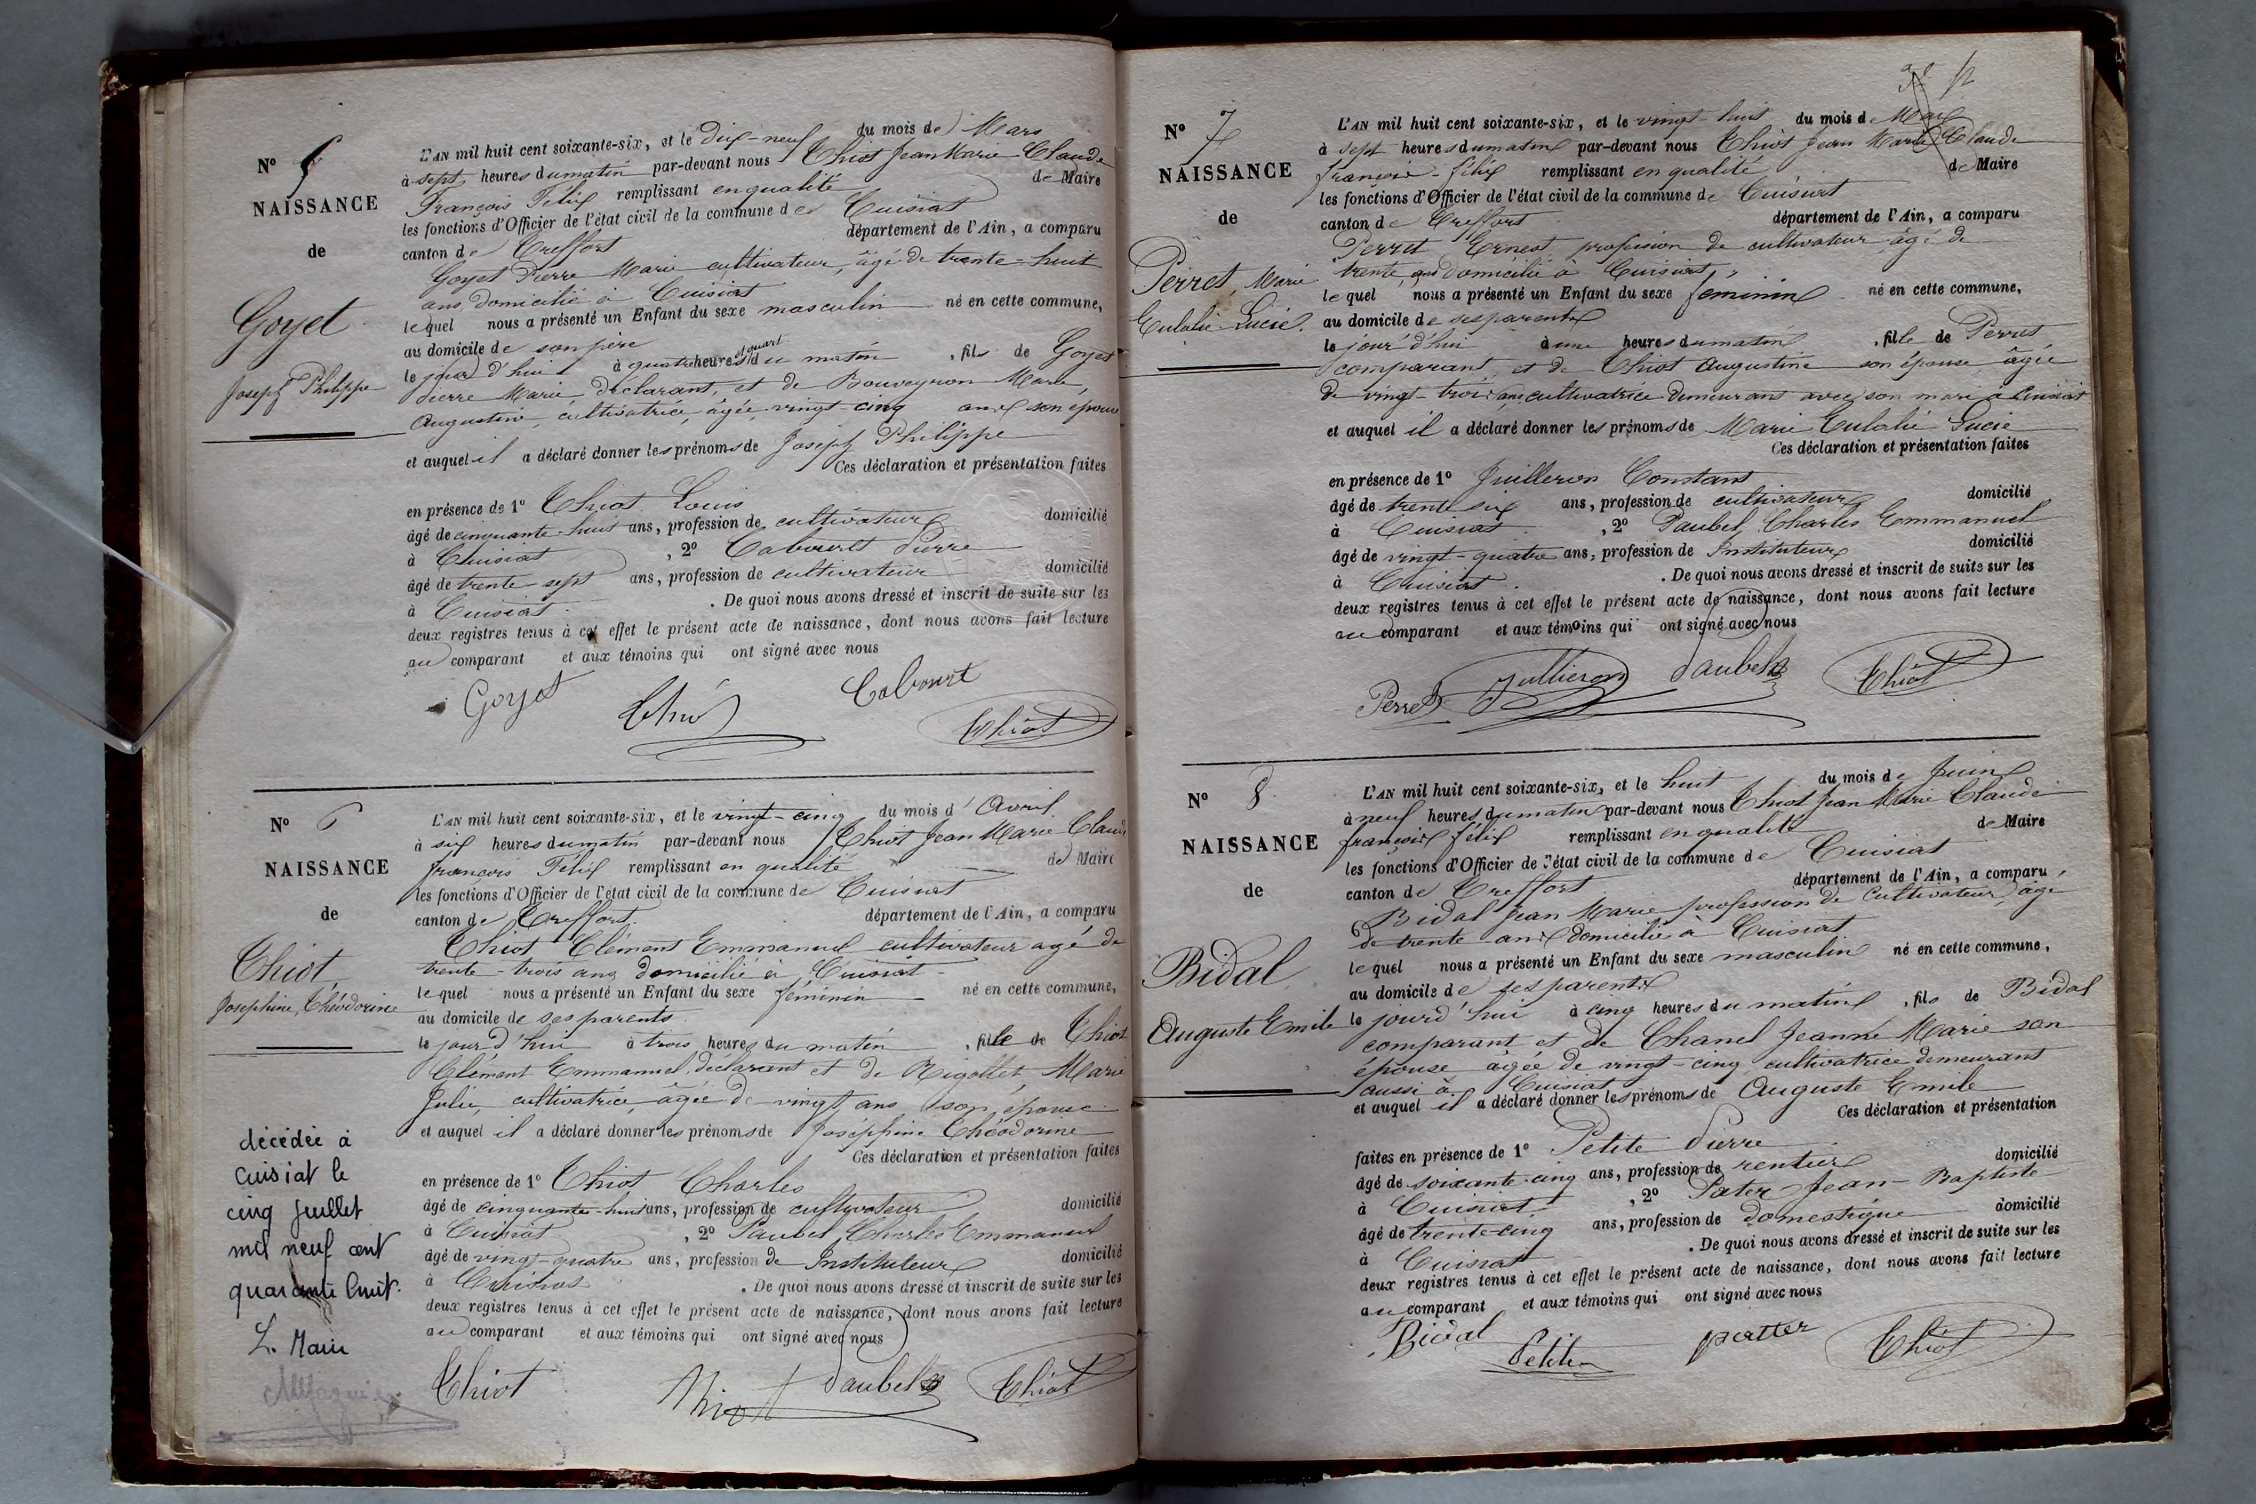 N° 5
NAISSANCE
de
Goyet
Joseph Philippe
L'AN mil huit cent soixante-six, et le dix-neuf du mois de Mars
à sept heures du matin par-devant nous Thiot Jean Marie Claude
François Félix remplissant en qualité de Maire
les fonctions d'Officier de l'état civil de la commune de Cuisiat
canton de Treffort département de l'Ain, a comparu
Goyet Pierre Marie cultivateur, âgé de trente-huit
ans domicilié à Cuisiat
lequel nous a présenté un Enfant du sexe masculin né en cette commune,
au domicile de son père
le jour d'hui à quatre heures et quart du matin, fils de Goyet
Pierre Marie, déclarant, et de Bouveyron Marie
Augustine, cultivatrice, âgée vingt-cinq ans son épouse
et auquel il a déclaré donner les prénoms de Joseph Philippe
Ces déclaration et présentation faites
en présence de 1° Thiot Louis
âgé de cinquante-huit ans, profession de cultivateur domicilié
à Cuisiat, 2° Cabourt Pierre
âgé de trente sept ans, profession de cultivateur domicilié
à Cuisiat. De quoi nous avons dressé et inscrit de suite sur les
deux registres tenus à cet effet le présent acte de naissance, dont nous avons fait lecture
au comparant et aux témoins qui ont signé avec nous
Goyet Thiot Cabourt
Thiot
N° 6
NAISSANCE
de
Thiot
Joséphine, Théodorine
décédée à
Cuisiat le
cinq Juillet
mil neuf cent
quarante huit.
L. Maire
L'AN mil huit cent soixante-six, et le vingt-cinq du mois d'Avril
à six heures du matin par-devant nous Thiot Jean Marie Claude
François Félix remplissant en qualité de Maire
les fonctions d'Officier de l'état civil de la commune de Cuisiat
canton de Treffort département de l'Ain, a comparu
Thiot Clément Emmanuel cultivateur agé de
trente-trois ans domicilié à Cuisiat
lequel nous a présenté un Enfant du sexe féminin né en cette commune,
au domicile de ses parents
le jour d'hui à trois heures du matin, fille de Thiot
Clément Emmanuel, déclarant et de Rigollet, Marie
Julie, cultivatrice, âgée de vingt ans son épouse
et auquel il a déclaré donner les prénoms de Joséphine Théodorine
Ces déclaration et présentation faites
en présence de 1° Thiot Charles
âgé de cinquante-huit ans, profession de cultivateur domicilié
à Cuisiat, 2° Paubel Charles Emmanuel
âgé de vingt-quatre ans, profession de Instituteur domicilié
à Cuisiat. De quoi nous avons dressé et inscrit de suite sur les
deux registres tenus à cet effet le présent acte de naissance, dont nous avons fait lecture
au comparant et aux témoins qui ont signé avec nous
Thiot Thiot Paubel Thiot
N° 7
NAISSANCE
de
Perret, Marie
Eulalie Lucie.
L'AN mil huit cent soixante-six, et le vingt-huit du mois de Mai
à sept heures du matin par-devant nous Thiot Jean Marie Claude
françois-félix remplissant en qualité de Maire
les fonctions d'Officier de l'état civil de la commune de Cuisiat
canton de Treffort département de l'Ain, a comparu
Perret Ernest profession de cultivateur âgé de
trente ans domicilié à Cuisiat,
lequel nous a présenté un Enfant du sexe feminin né en cette commune,
au domicile de ses parents
le jour d'hui à une heures du matin, fille de Perret
comparant, et de Thiot Augustine son épouse, âgée
de vingt-trois ans cultivatrice demeurant avec son mari à Cuisiat
et auquel il a déclaré donner les prénoms de Marie Eulalie Lucie
Ces déclaration et présentation faites
en présence de 1° Juilleron Constant
âgé de trente six ans, profession de cultivateur domicilié
à Cuisiat, 2° Paubel Charles Emmanuel
âgé de vingt-quatre ans, profession de Instituteur domicilié
à Cuisiat. De quoi nous avons dressé et inscrit de suite sur les
deux registres tenus à cet effet le présent acte de naissance, dont nous avons fait lecture
au comparant et aux témoins qui ont signé avec nous
Perret Jullieron Paubel Thiot
N° 8
NAISSANCE
de
Bidal
Auguste Emile
L'AN mil huit cent soixante-six, et le huit du mois de Juin
à neuf heures du matin par-devant nous Thiot Jean Marie Claude
françois félix remplissant en qualité de Maire
les fonctions d'Officier de l'état civil de la commune de Cuisiat
canton de Treffort département de l'Ain, a comparu
Bidal Jean Marie profession de Cultivateur, âgé
de trente ans domicilié à Cuisiat
lequel nous a présenté un Enfant du sexe masculin né en cette commune,
au domicile de ses parents
le jour d'hui à cinq heures du matin, fils de Bidal
comparant et de Chanel Jeanne Marie son
épouse âgée de vingt-cinq cultivatrice demeurant
aussi à Cuisiat
et auquel il a déclaré donner les prénoms de Auguste Emile
Ces déclaration et présentation
faites en présence de 1° Petite Pierre
âgé de soixante-cinq ans, profession de rentier domicilié
à Cuisiat, 2° Pater Jean-Baptiste
âgé de trente-cinq ans, profession de domestique domicilié
à Cuisiat. De quoi nous avons dressé et inscrit de suite sur les
deux registres tenus à cet effet le présent acte de naissance, dont nous avons fait lecture
au comparant et aux témoins qui ont signé avec nous
Bidal Petite patter Thiot